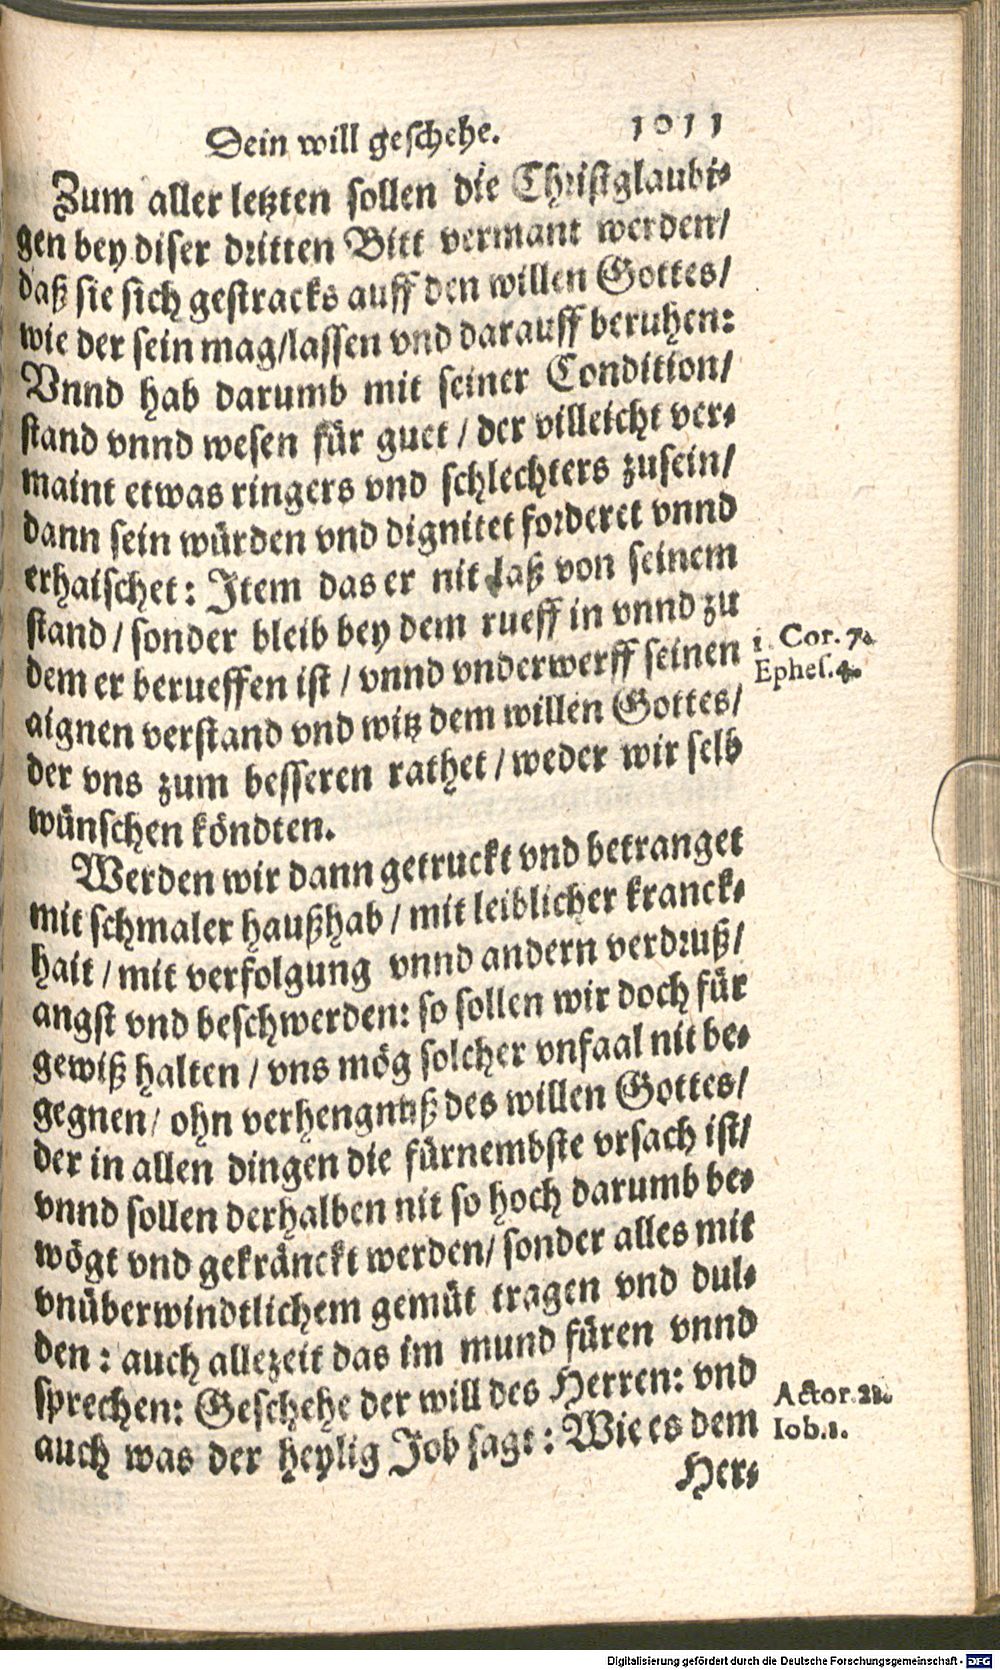 Dein will geschehe. 1011
Zum aller letzten sollen die Christglaubi-
gen bey diser dritten Bitt vermant werden/
daß sie sich gestracks auff den willen Gottes/
wie der sein mag/lassen vnd darauff beruhen:
Vnnd hab darumb mit seiner Condition/
stand vnnd wesen für guet / der villeicht ver-
maint etwas ringers vnd schlechters zusein/
dann sein würden vnd dignitet forderet vnnd
erhaischet: Item das er nit laß von seinem
stand / sonder bleib bey dem rueff in vnnd zu
dem er berueffen ist / vnnd vnderwerff seinen
1. Cor. 7.
Ephes. 4.
aignen verstand vnd witz dem willen Gottes/
der vns zum besseren rathet / weder wir selb
wünschen köndten.
Werden wir dann getruckt vnd betranget
mit schmaler haußhab / mit leiblicher kranck-
hait / mit verfolgung vnnd andern verdruß/
angst vnd beschwerden: so sollen wir doch für
gewiß halten / vns mög solcher vnfaal nit be-
gegnen/ ohn verhengnuß des willen Gottes/
der in allen dingen die fürnembste vrsach ist/
vnnd sollen derhalben nit so hoch darumb be-
wögt vnd gekränckt werden/ sonder alles mit
vnüberwindtlichem gemüt tragen vnd dul-
den : auch allezeit das im mund füren vnnd
sprechen: Geschehe der will des Herren: vnd
Actor. 21.
auch was der heylig Job sagt : Wie es dem
Iob. 1.
Her-
Digitalisierung gefördert durch die Deutsche Forschungsgemeinschaft - DFG